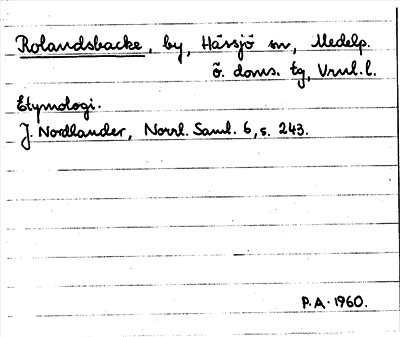 Rolandsbacke, by, Hässjö sn, Medelp.
ö. doms. tg, Vrnl. l.
Etymologi.
J. Nordlander, Norrl. Saml. 6, s. 243.
P.A. 1960.